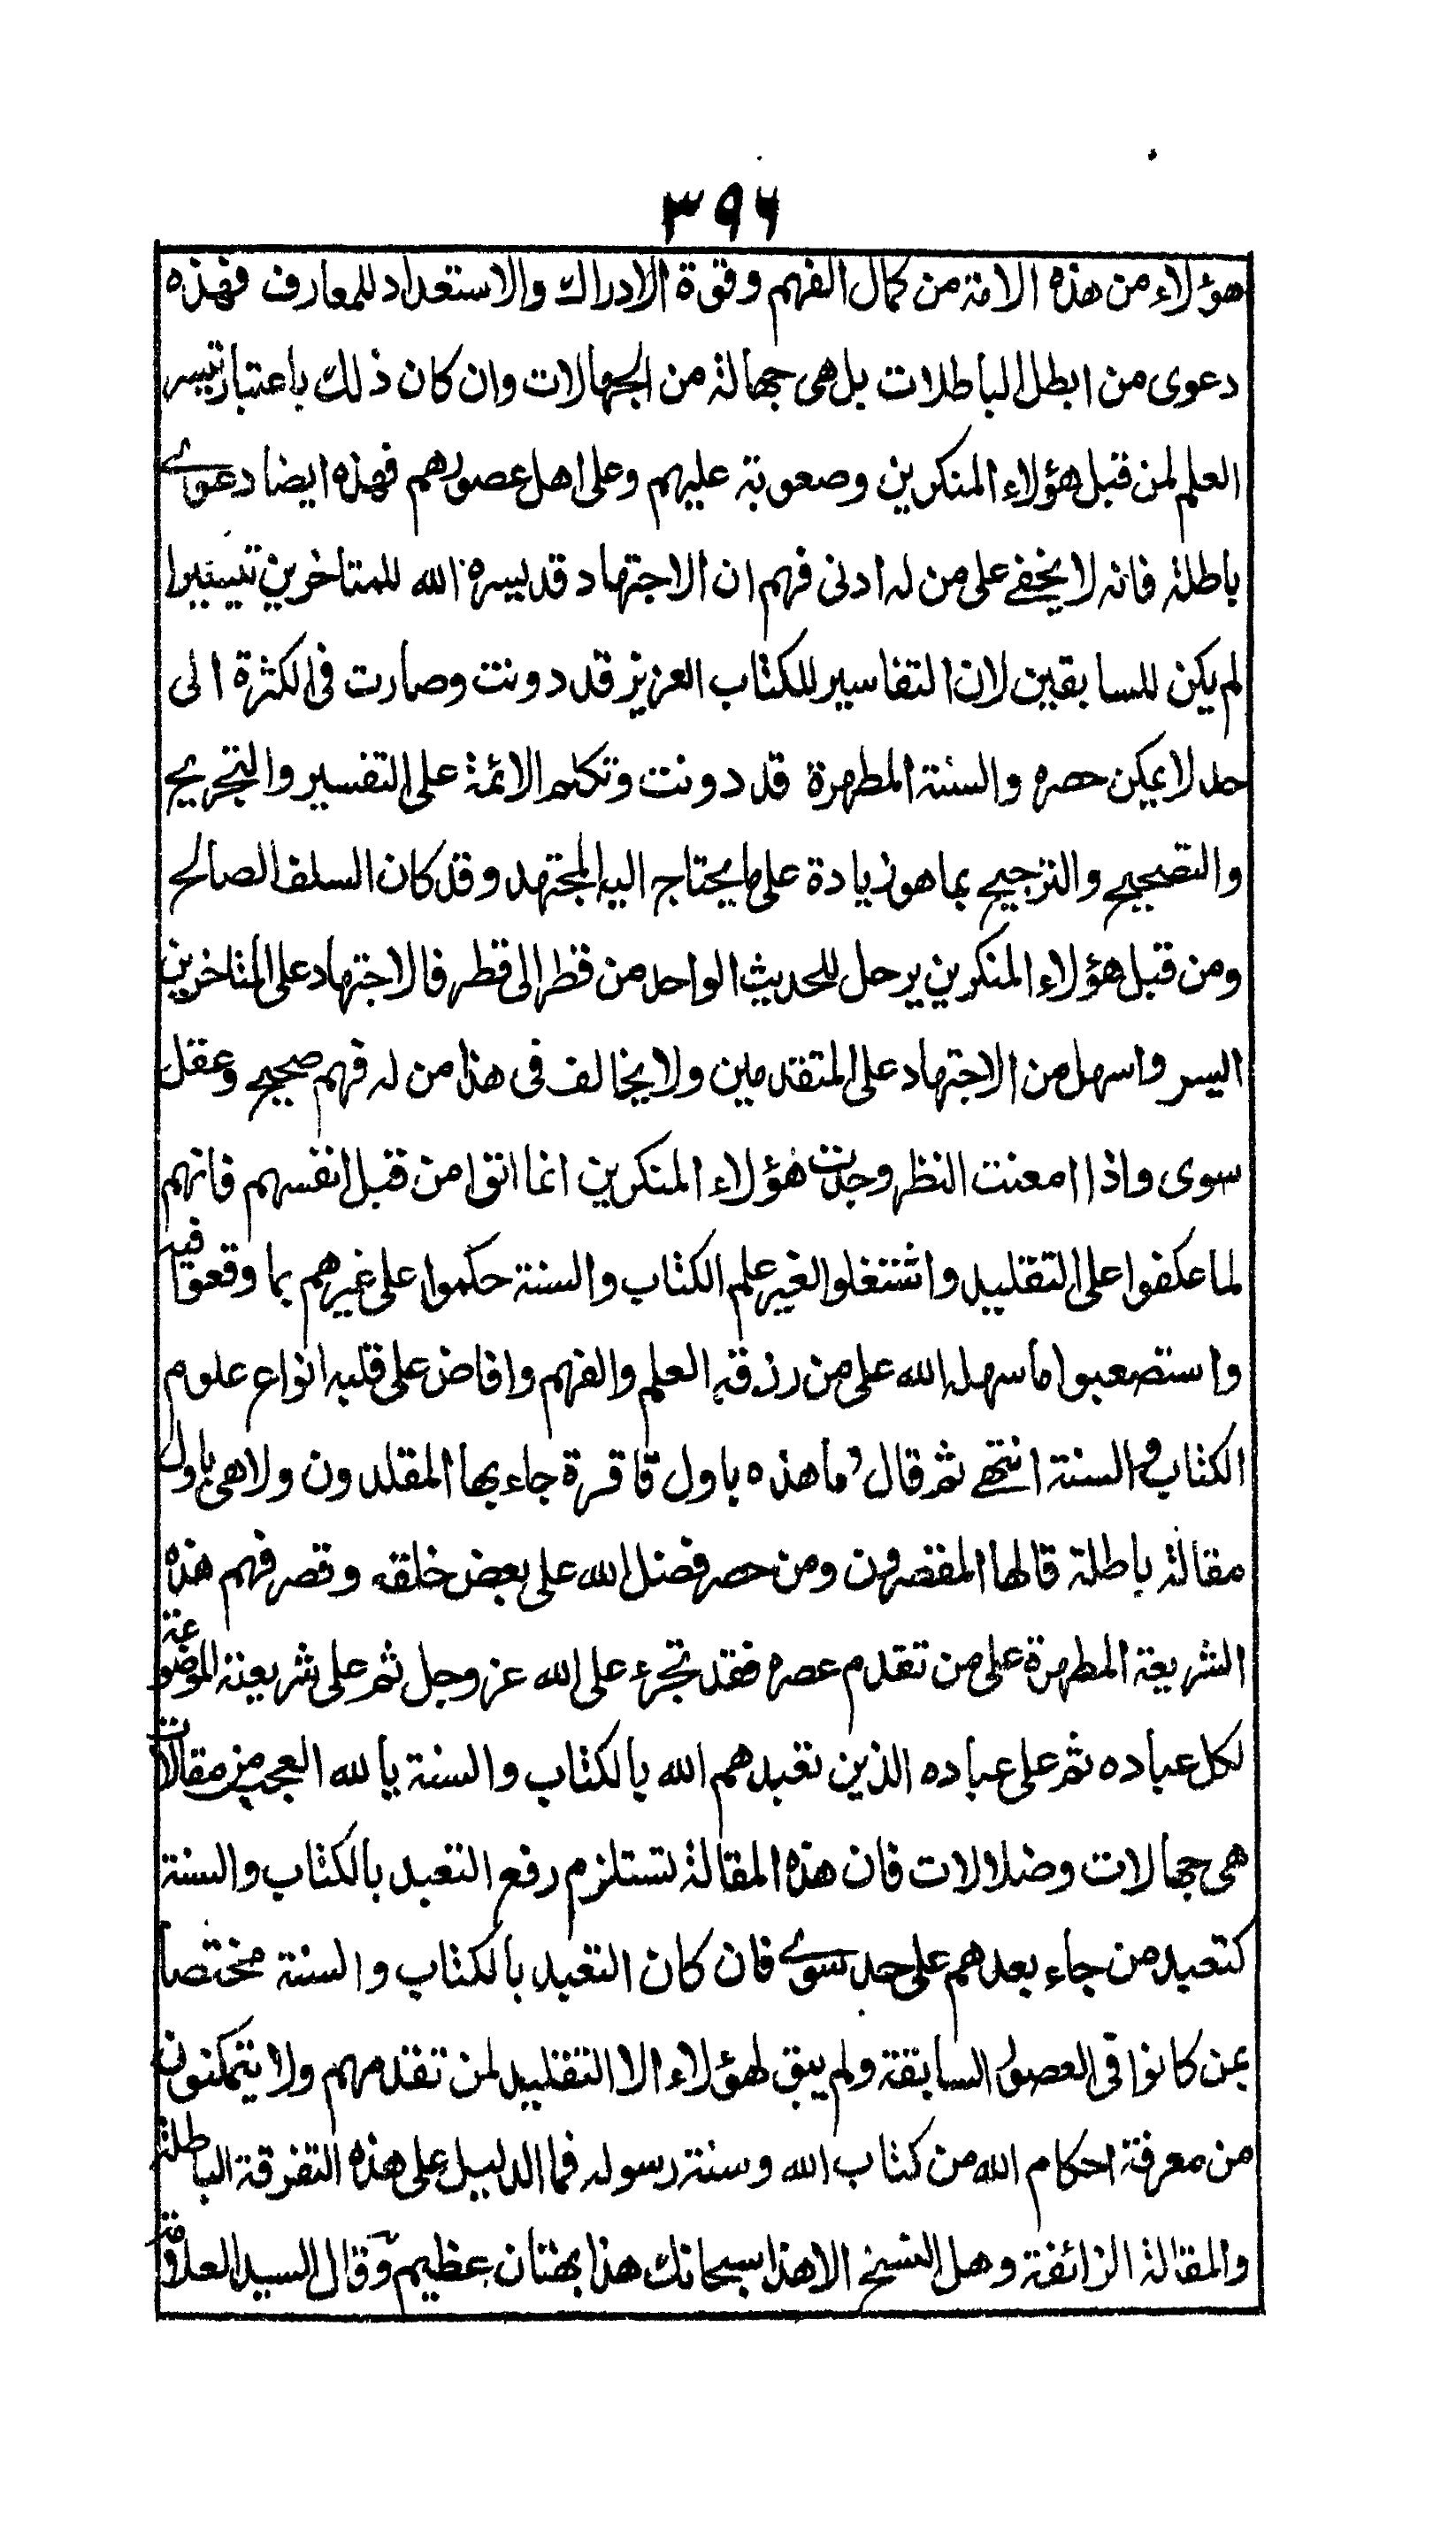 ۳۹۶
هؤلاء من هذه الامة من كمال الفهم وقوة الادراك والاستعداد للمعارف فهذه
دعوى من ابطل الباطلات بل هى جهالة من الجهالات وان كان ذلك باعتبار تيسر
العلم لمن قبل هؤلاء المنكرين وصعوبة عليهم وعلى اهل عصورهم فهذه ايضا دعوے
باطلة فانه لا يخفے على من له ادنى فهم ان الاجتهاد قد يسره الله للمتاخرين تيسيرا
لم يكن للسابقين لان التفاسير للكتاب العزيز قد دونت وصارت فى الكثرة الى
حد لا يمكن حصره والسنة المطهرة قد دونت وتكلم الائمة على التفسير والتجريح
والتصحيح والترجيح بما هو زيادة على ما يحتاج اليه المجتهد وقد كان السلف الصالح
ومن قبل هؤلاء المنكرين يرحل للحديث الواحد من قطر الى قطر فالاجتهاد على المتاخرين
ايسر واسهل من الاجتهاد على المتقدمين ولا يخالف فى هذا من له فهم صحيح وعقل
سوى واذا امعنت النظر وجدت هؤلاء المنكرين انما اتوا من قبل انفسهم فانهم
لما عكفوا على التقليد واشتغلوا لغير علم الكتاب والسنة حكموا على غيرهم بما وقعوا فيه
واستصعبوا ما سهله الله على من رزقه العلم والفهم وافاض على قلبه انواع علوم
الكتاب والسنة انتهے ثم قال وما هذه باول فاقرة جاء بها المقلدون ولا هى باول
مقالة باطلة قالها المقصرون ومن حصر فضل الله على بعض خلقه وقصر فهم هذه
الشريعة المطهرة على من تقدم عصره فقد تجرء على الله عز وجل ثم على شريعته الموضوعة
لكل عباده ثم على عباده الذين تعبدهم الله بالكتاب والسنة يا لله العجب من مقالات
هى جهالات وضلالات فان هذه المقالة تستلزم رفع التعبد بالكتاب والسنة
كتعبد من جاء بعدهم على حد سوے فان كان التعبد بالكتاب والسنة مختصا
بمن كانوا فى العصور السابقة ولم يبق لهؤلاء الا التقليد لمن تقدمهم ولا يتمكنون
من معرفة احكام الله من كتاب الله وسنة رسوله فما الدليل على هذه التفرقة الباطلة
والمقالة الزائفة وهل النسخ الا هذا سبحانك هذا بهتان عظيم وقال السيد العلامة